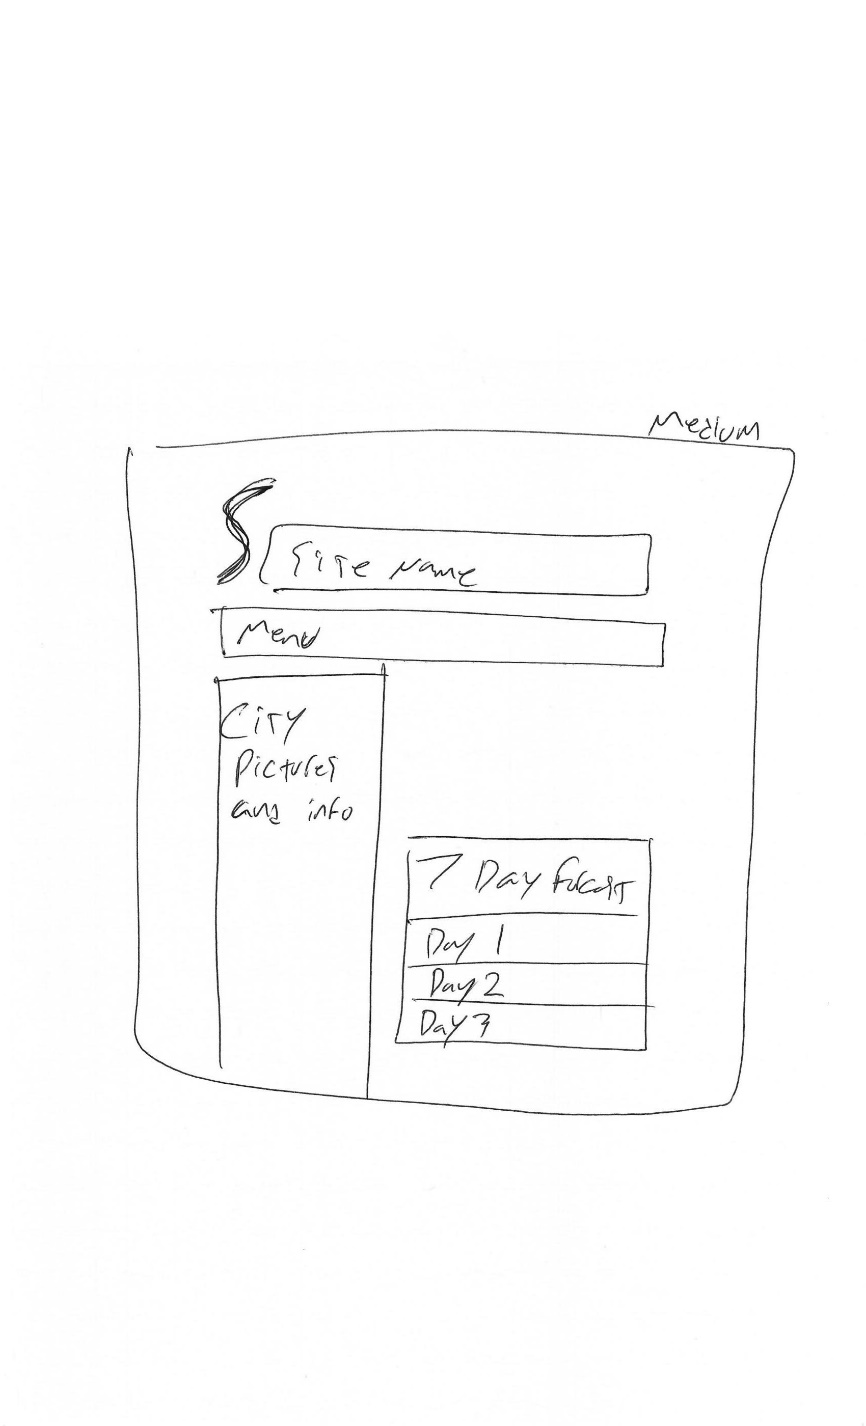 Medium
S
Site Name
Menu
City
Pictures
and info
7 Day Forcast
Day 1
Day 2
Day 3